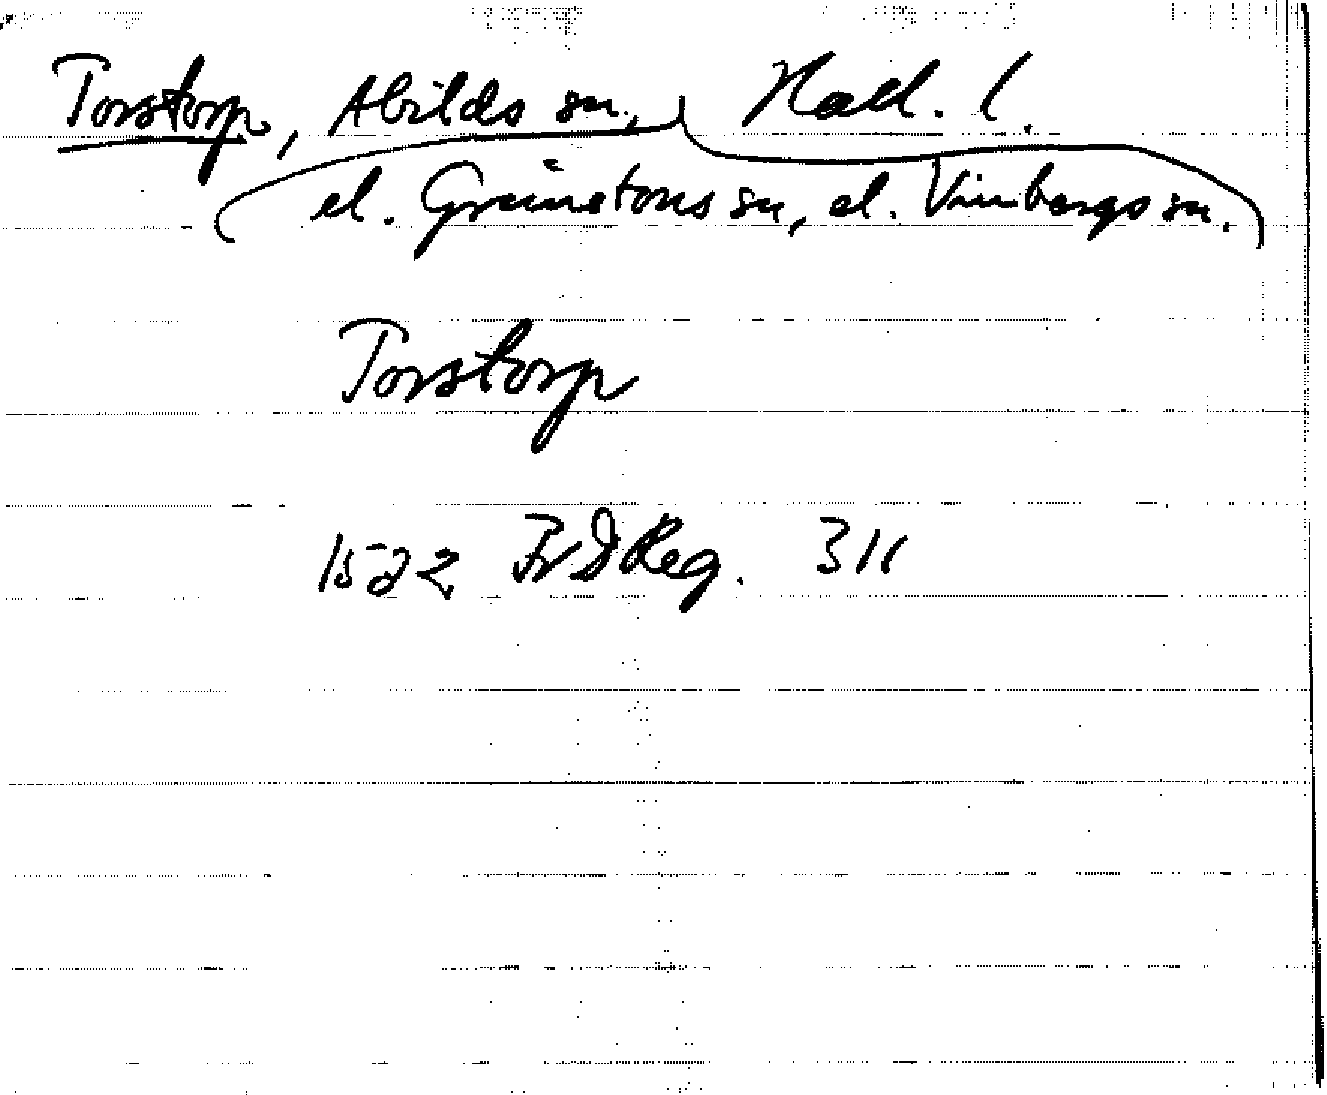 Torstorp, Abilds sn, Hall. l.
el. Grimetons sn, el. Vinbergs sn.
Torstorp
1522 FrDReg. 311